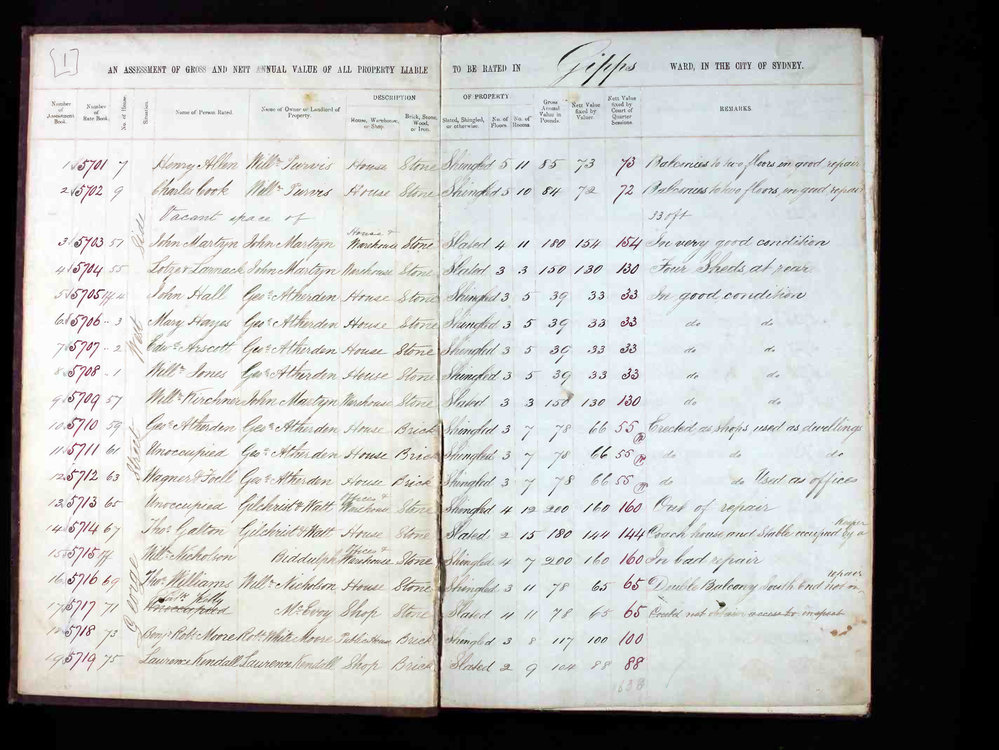 [1]
AN ASSESSMENT OF GROSS AND NETT ANNUAL VALUE OF ALL PROPERTY LIABLE TO BE RATED IN Gipps WARD, IN THE CITY OF SYDNEY.
DESCRIPTION OF PROPERTY
Number of Assessment Book. Number of Rate Book. No. of House. Situation. Name of Person Rated. Name of Owner or Landlord of Property. House, Warehouse, or Shop. Brick, Stone, Wood, or Iron. Slated, Shingled, or otherwise. No. of Floors. No. of Rooms. Gross Annual Value in Pounds. Nett Value fixed by Valuer. Nett Value fixed by Court of Quarter Sessions. REMARKS.
George Street West Side
1 5701 7 Henry Allen Willm Purvis House Stone Shingled 5 11 85 73 73 Balconies to two floors in good repair
2 5702 9 Charles Cook Willm Purves House Stone Shingled 5 10 84 72 72 Balconies to two floors in good repair
Vacant space of 33 oft
3 5703 51 John Martyn John Martyn House & Warehouse Stone Slated 4 11 180 154 154 In very good condition
4 5704 55 Lotze & Larnach John Martyn Warehouse Stone Slated 3 3 150 130 130 Four Sheds at rear
5 5705 4 John Hall Geo. Atherden House Stone Shingled 3 5 39 33 33 In good condition
6 5706 .. 3 Mary Hayes Geo. Atherden House Stone Shingled 3 5 39 33 33 do do
7 5707 .. 2 Edwd Arscott Geo. Atherden House Stone Shingled 3 5 39 33 33 do do
8 5708 .. 1 Willm Jones Geo. Atherden House Stone Shingled 3 5 39 33 33 do do
9 5709 57 Willm Kirchner John Martyn Warehouse Stone Slated 3 3 150 130 130 do do
10 5710 59 Geo. Atherden Geo. Atherden House Brick Shingled 3 7 78 66 55 Erected as shops used as dwellings
11 5711 61 Unoccupied Geo. Atherden House Brick Shingled 3 7 78 66 55 do do do
12 5712 63 Wagner & Foell Geo. Atherden House Brick Shingled 3 7 78 66 55 do do Used as offices
13 5713 65 Unoccupied Gilchrist & Watt Offices & Warehouse Stone Shingled 4 12 200 160 160 Out of repair
14 5714 67 Thos. Galton Gilchrist & Watt House Stone Slated 2 15 180 144 144 Coach house and Stable occupied by a
15 5715 Willm Nicholson Biddulph Offices & Warehouse Stone Shingled 4 7 200 160 160 In bad repair
16 5716 69 Thos. Williams Willm Nicholson House Stone Shingled 3 11 78 65 65 Double Balcony South End not in repair
17 5717 71 Kelly Unoccupied McEvoy Shop Stone Slated 4 11 78 65 65 Could not obtain access to inspect
18 5718 73 Benjn Robt Moore Robt White Moore Public House Brick Shingled 3 8 117 100 100
19 5719 75 Laurence Kendall Laurence Kendall Shop Brick Slated 2 9 104 88 88
1638